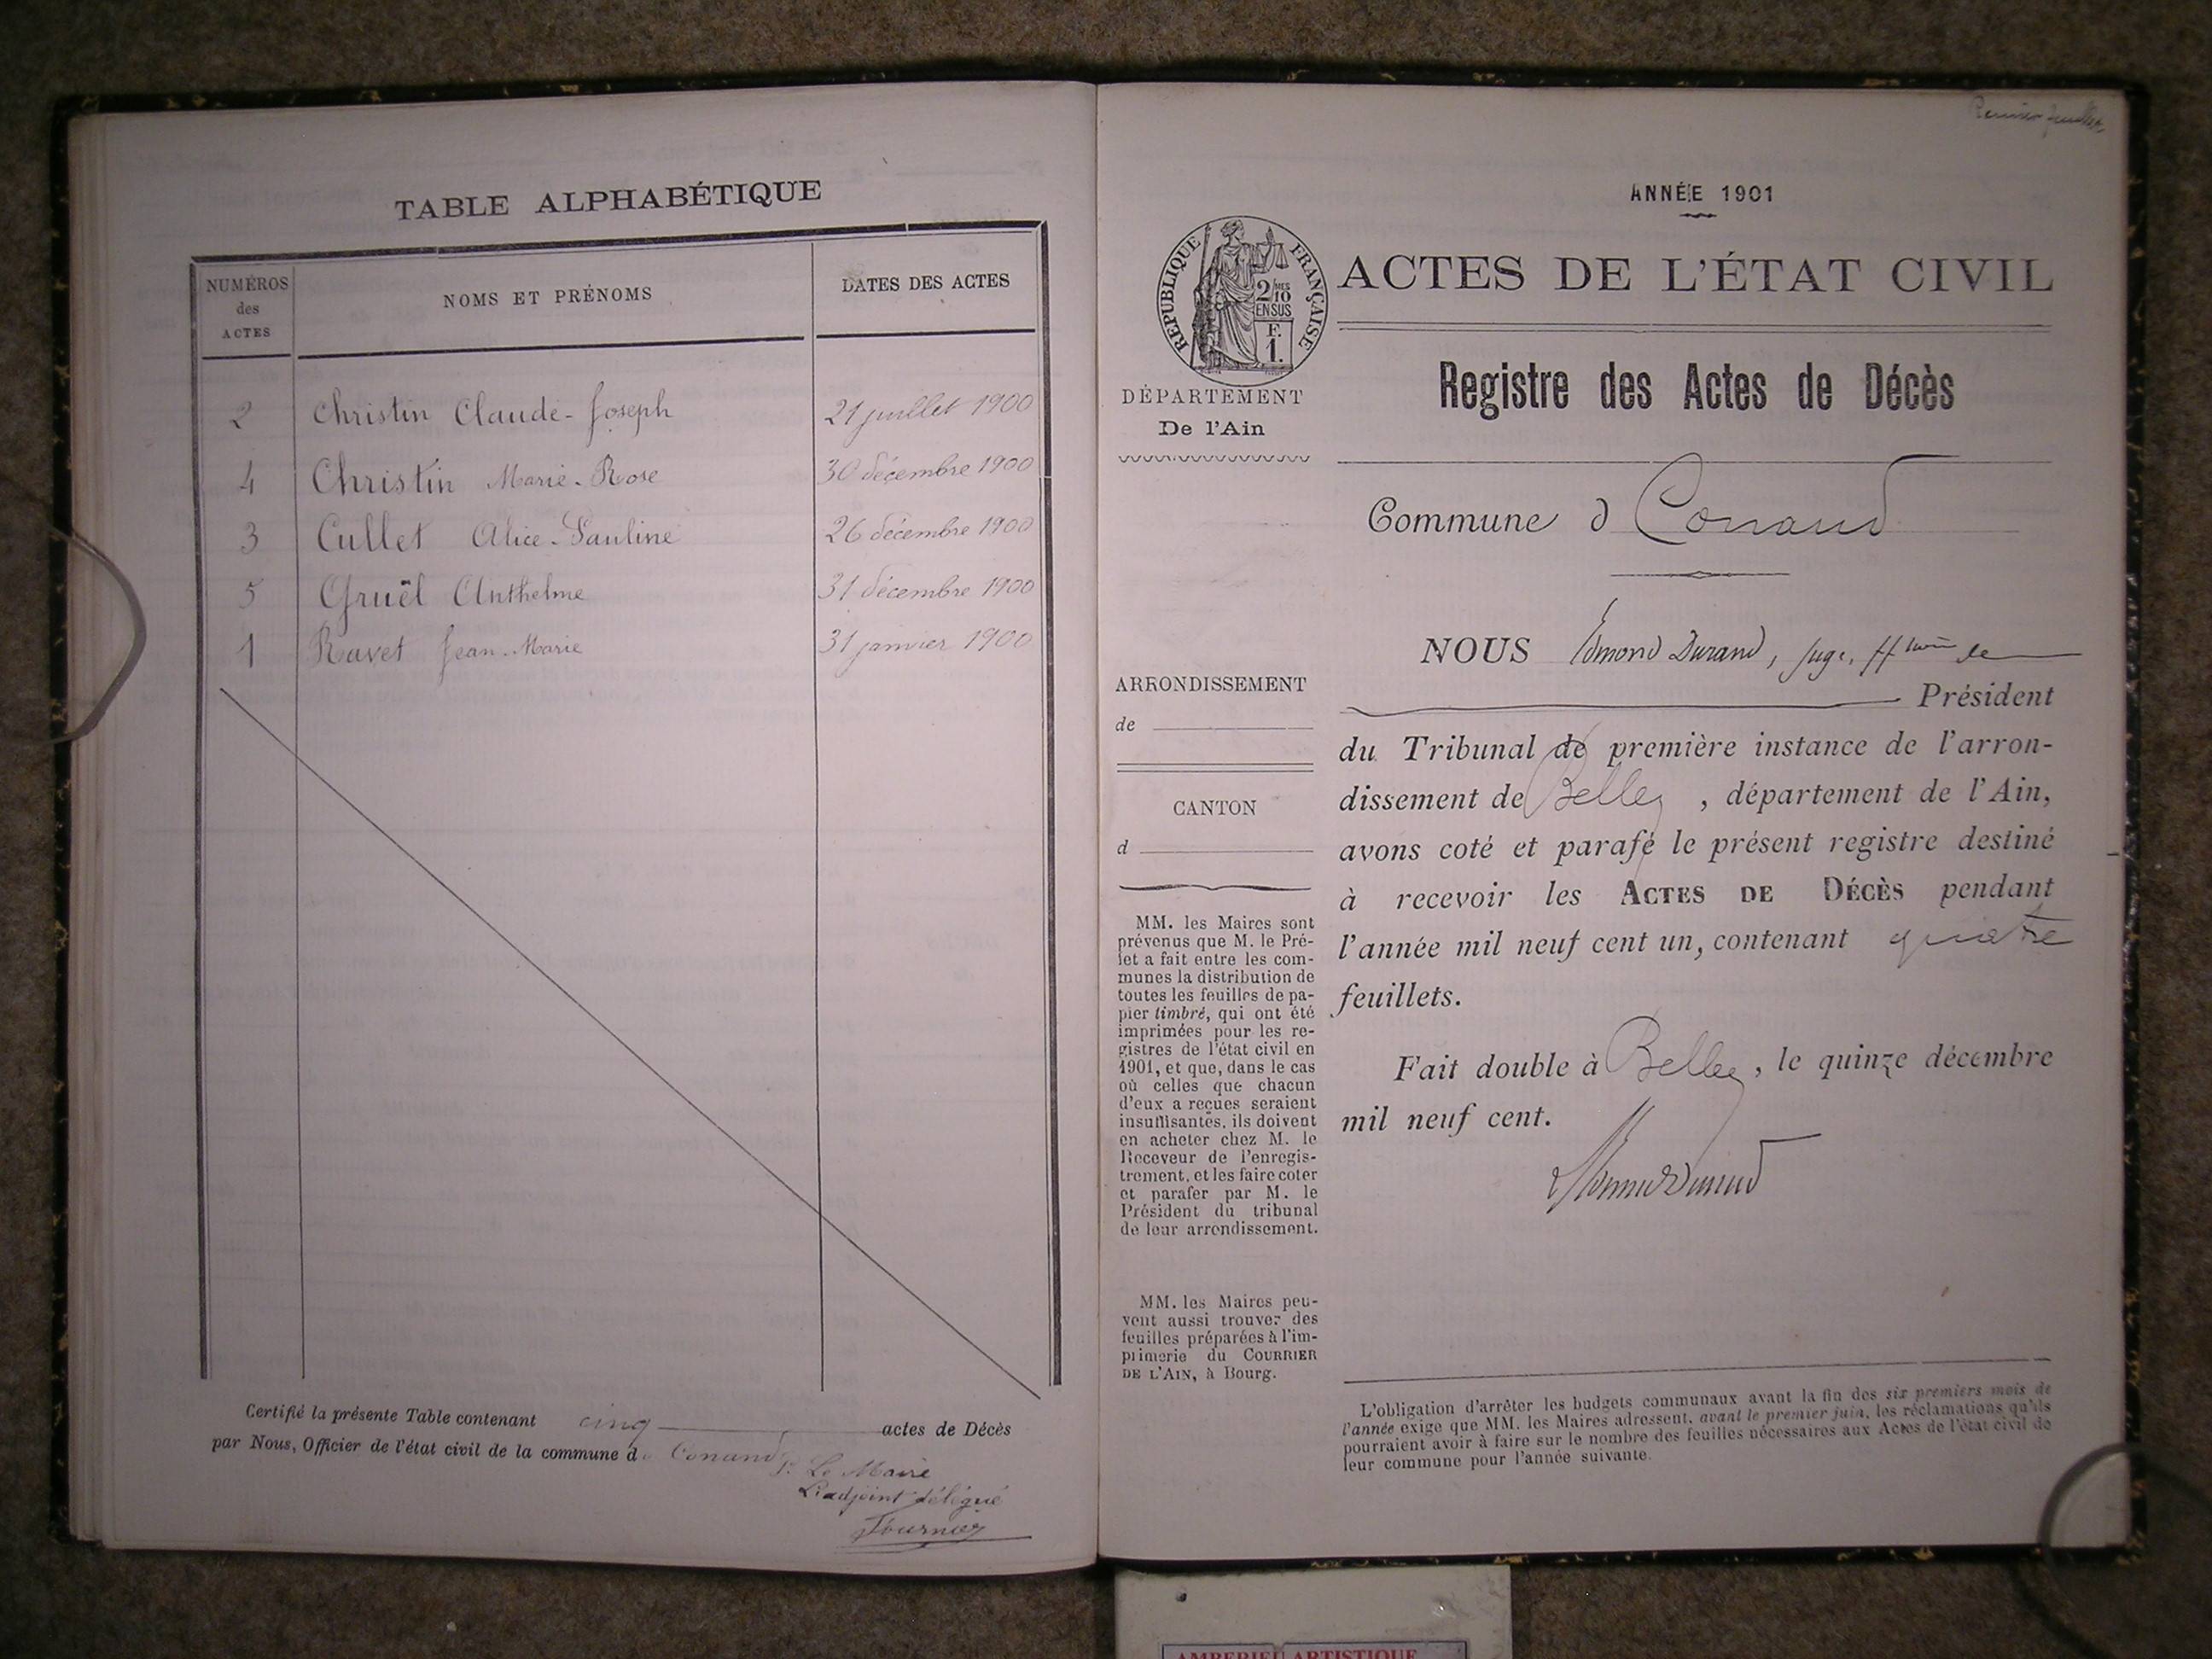 TABLE ALPHABÉTIQUE
NUMÉROS des ACTES
NOMS ET PRÉNOMS
DATES DES ACTES
2 Christin Claude-Joseph 21 juillet 1900
4 Christin Marie-Rose 30 décembre 1900
3 Cullet Alice-Pauline 26 décembre 1900
5 Gruël Anthelme 31 décembre 1900
1 Ravet Jean-Marie 31 janvier 1900
Certifié la présente Table contenant cinq actes de Décès
par Nous, Officier de l'état civil de la commune de Conand
P. Le Maire
L'adjoint délégué
Fournier
Premier feuillet
ANNÉE 1901
RÉPUBLIQUE FRANÇAISE
2/10 MES
EN SUS
F.
1.
DÉPARTEMENT
De l'Ain
ARRONDISSEMENT
de
CANTON
d
MM. les Maires sont
prévenus que M. le Pré-
fet a fait entre les com-
munes la distribution de
toutes les feuilles de pa-
pier timbré, qui ont été
imprimées pour les re-
gistres de l'état civil en
1901, et que, dans le cas
où celles que chacun
d'eux a reçues seraient
insuffisantes, ils doivent
en acheter chez M. le
Receveur de l'enregis-
trement, et les faire coter
et parafer par M. le
Président du tribunal
de leur arrondissement.
MM. les Maires peu-
vent aussi trouver des
feuilles préparées à l'im-
primerie du COURRIER
DE L'AIN, à Bourg.
ACTES DE L'ÉTAT CIVIL
Registre des Actes de Décès
Commune d Conand
NOUS Edmond Durand, Juge, ff de
Président
du Tribunal de première instance de l'arron-
dissement de Belley, département de l'Ain,
avons coté et parafé le présent registre destiné
à recevoir les ACTES DE DÉCÈS pendant
l'année mil neuf cent un, contenant quatre
feuillets.
Fait double à Belley, le quinze décembre
mil neuf cent.
L'obligation d'arrêter les budgets communaux avant la fin des six premiers mois de
l'année exige que MM. les Maires adressent, avant le premier juin, les réclamations qu'ils
pourraient avoir à faire sur le nombre des feuilles nécessaires aux Actes de l'état civil de
leur commune pour l'année suivante.
AMBERIEU ARTISTIQUE